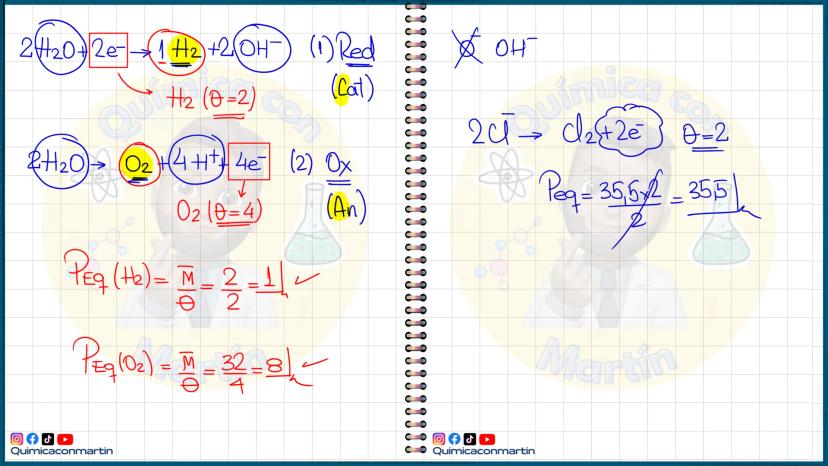 2H₂O + 2e⁻ → 1 H₂ + 2OH⁻ (1) Red
(Cat)
H₂ (θ=2)
2H₂O → O₂ + 4H⁺ + 4e⁻ (2) Ox
(An)
O₂ (θ=4)
PEq (H₂) = M/θ = 2/2 = 1
PEq (O₂) = M/θ = 32/4 = 8
Química con
Martín
Quimicaconmartin
OH⁻
2Cl⁻ → Cl₂ + 2e⁻ θ=2
Peq = 35,5x2/2 = 35,5
Química con
Martín
Quimicaconmartin